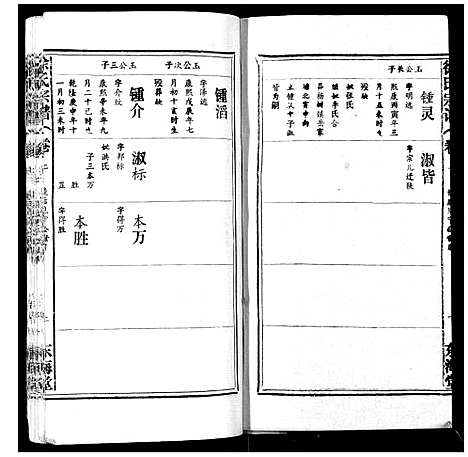 玉公长子
锺灵
字明远
康熙丙寅年三
月十五未时生
殁缺
妣张氏
继妣李氏合
葬杨树镇岳家
埔北亥山
皆为嗣
淑皆
字宗儿迁陕
玉公次子
锺滔
字泽远
康熙戊辰年七
月初十寅时生
殁葬缺
玉公三子
锺介
字介坟
康熙辛未年九
月二十己时生
乾隆庚申年十
一月初三未时
淑标
字邦标
妣洪氏
子三本万
胜
本万
字得万
本胜
字得胜
徐氏宗谱
卷十
东海堂